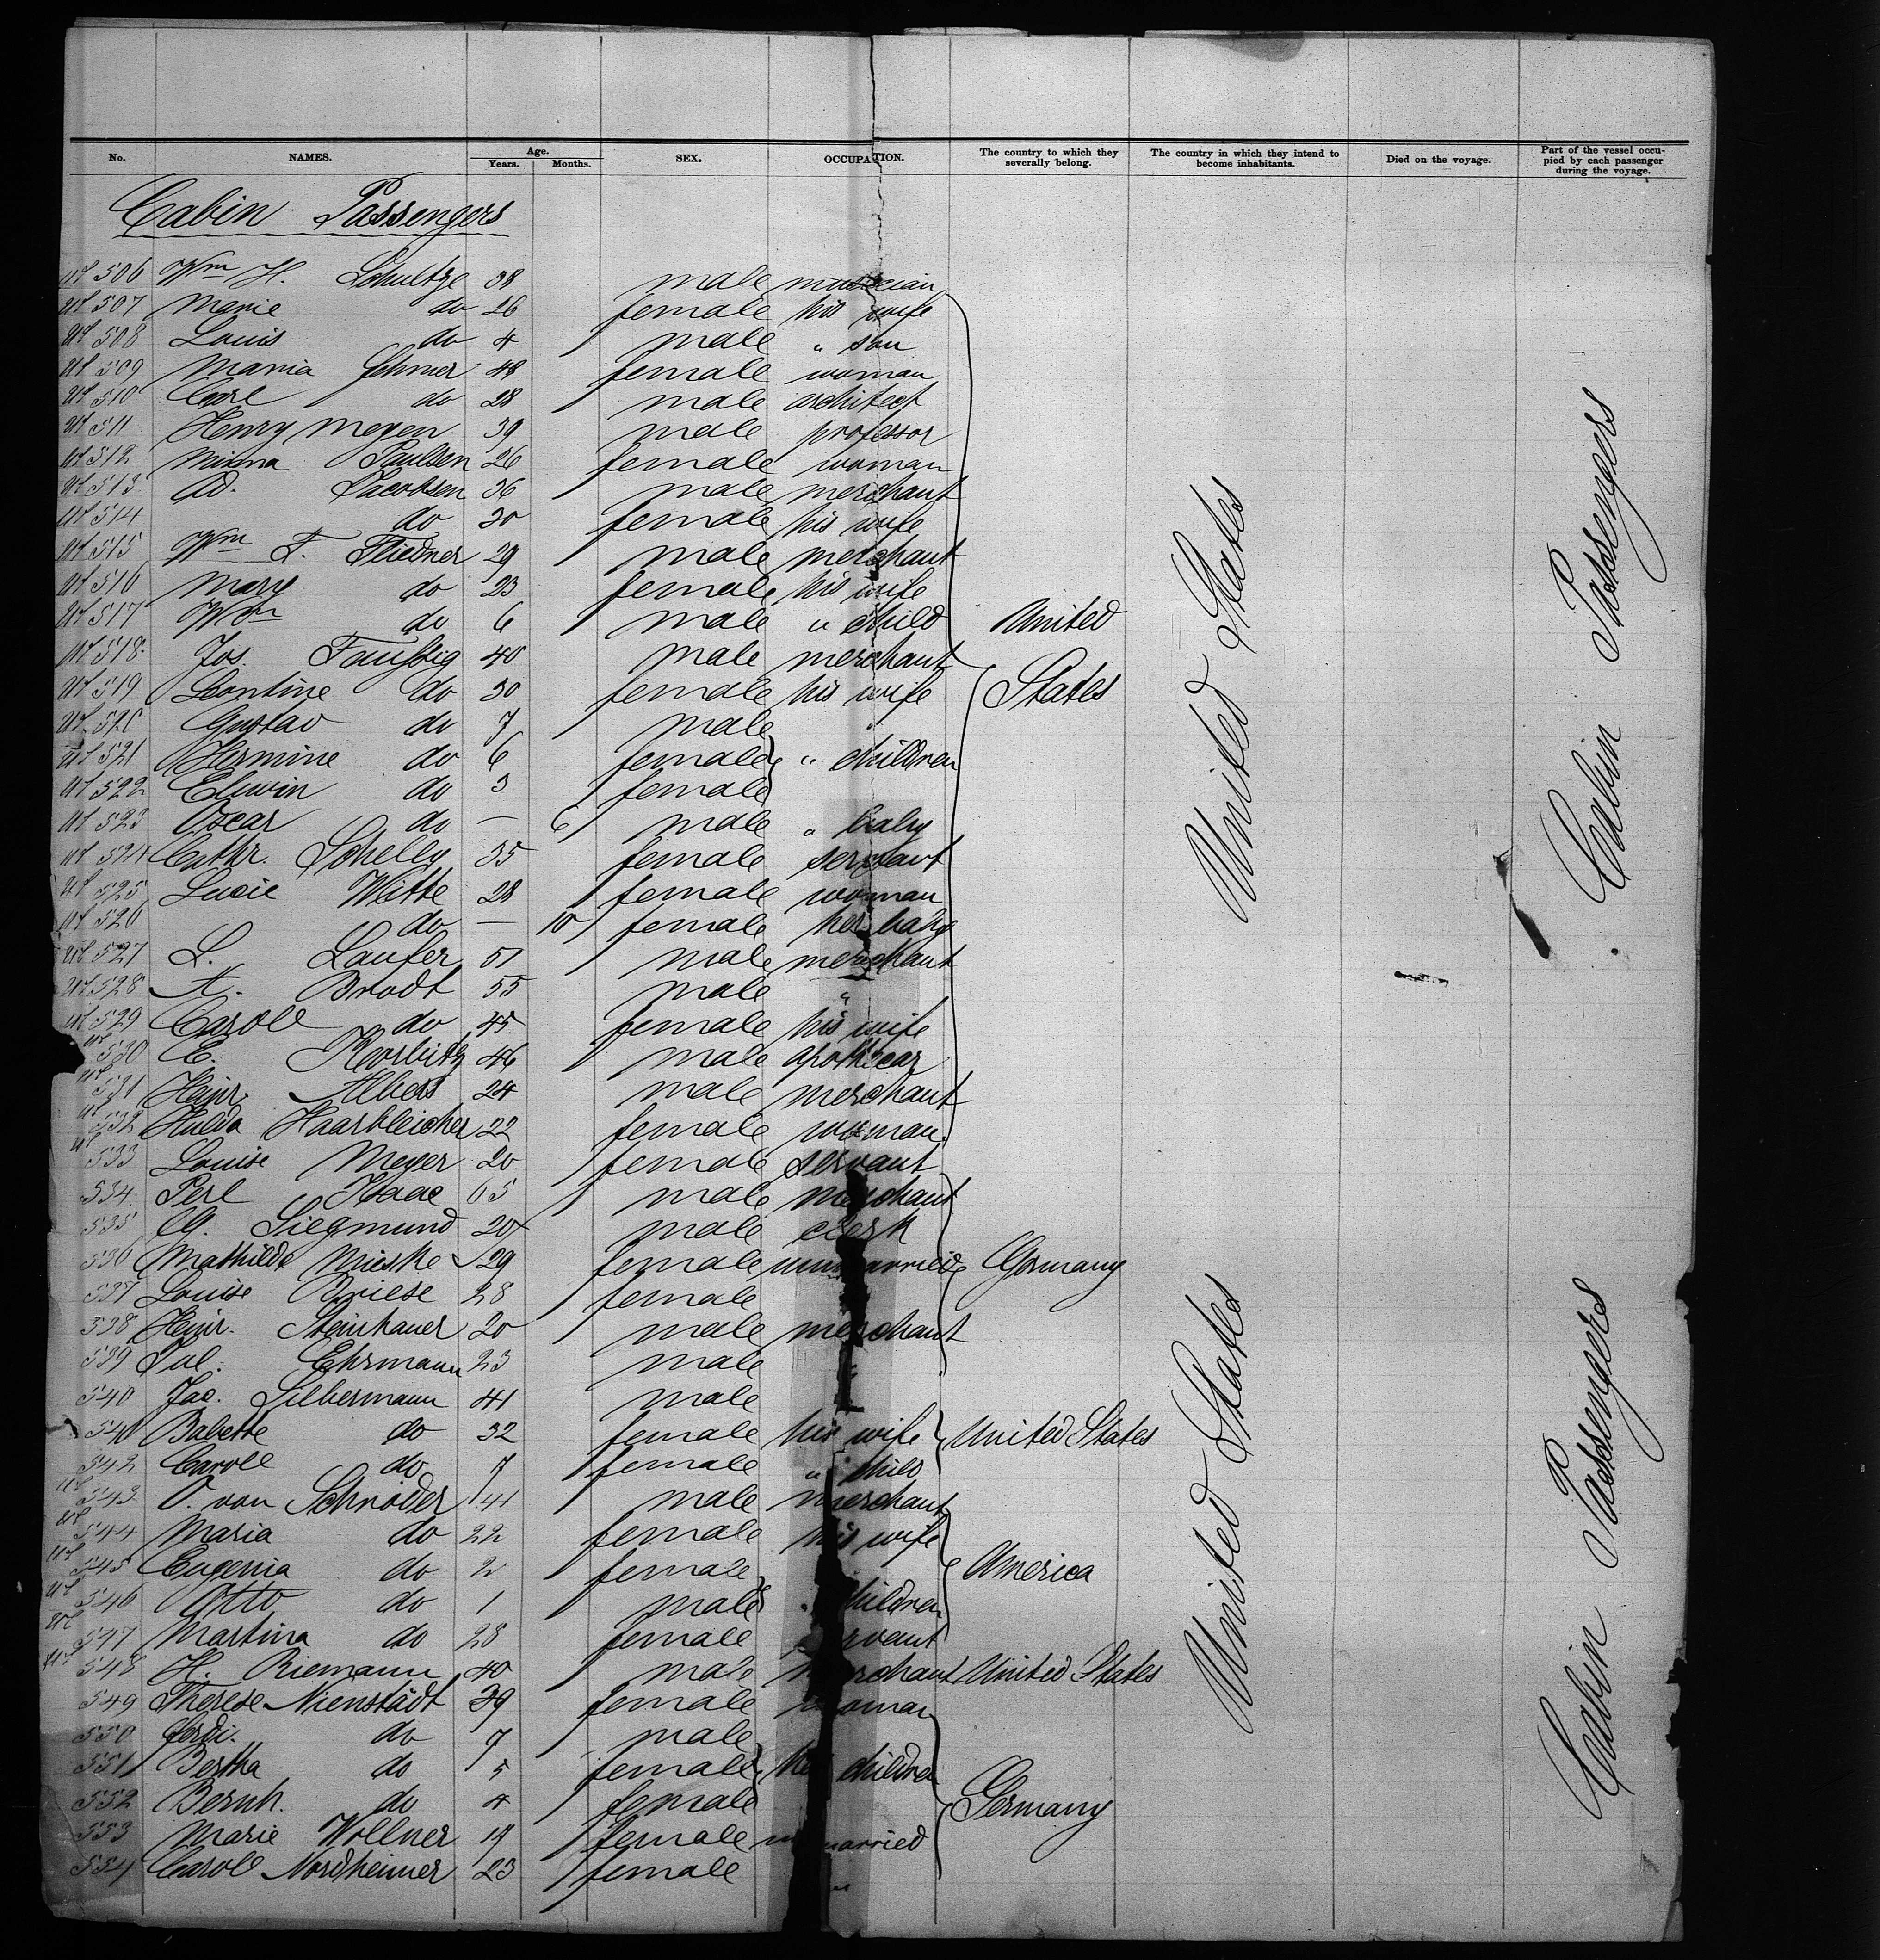 No. NAMES. Age. Years. Months. SEX. OCCUPATION. The country to which they severally belong. The country in which they intend to become inhabitants. Died on the voyage. Part of the vessel occupied by each passenger during the voyage.
Cabin Passengers
506 Wm H. Schultze 38 male musician
507 Marie do 26 female his wife
508 Louis do 4 male " son
509 Maria 48 female woman
510 Carl do 28 male architect
511 Henry Meyen 39 male professor
512 Minna Paulsen 26 female woman
513 Ad. Jacobsen 36 male merchant
514 do 30 female his wife
515 Wm F. Fliedner 29 male merchant
516 Mary do 23 female his wife
517 Wm do 6 male " child United
518 Jos. Taussig 40 male merchant
519 Leontine do 30 female his wife States
520 Gustav do 7 male "
521 Hermine do 6 female " children
522 Elwin do 3 female
523 Oscar do — 6 male " baby
524 Cathr. Schelly 35 female servant
525 Lucie Witte 28 female woman
526 do — 10 female her baby
527 L. Laufer 51 male merchant
528 A. Brodt 55 male "
529 Caroll do 45 female his wife
530 C. 46 male apothecar
531 Heinr. Albers 24 male merchant
532 Hulda Haarbleicher 22 female woman
533 Louise Meyer 20 female servant
534 Perl Isaac 65 male merchant
535 G. Siegmund 20 male clerk
536 Mathilde Mieske 29 female unmarried Germany
537 Louise Briese 28 female
538 Heinr. Steinhauer 20 male merchant
539 Jul. Ehrmann 23 male "
540 Jac. Silbermann 41 male
541 Babette do 32 female his wife United States
542 Caroll do 7 female " child
543 O. von Schröder 41 male merchant
544 Maria do 22 female his wife
545 Eugenia do 2 female America
546 Otto do 1 male " children
547 Martina do 28 female servant
548 H. Riemann 40 male merchant United States
549 Therese Nienstädt 39 female woman
550 Ferdi. do 7 male
551 Bertha do 5 female her children
552 Bernh. do 4 female Germany
553 Marie Wollner 19 female unmarried
554 Caroll Nordheimer 23 female "
United States
United States
Cabin Passengers
Cabin Passengers